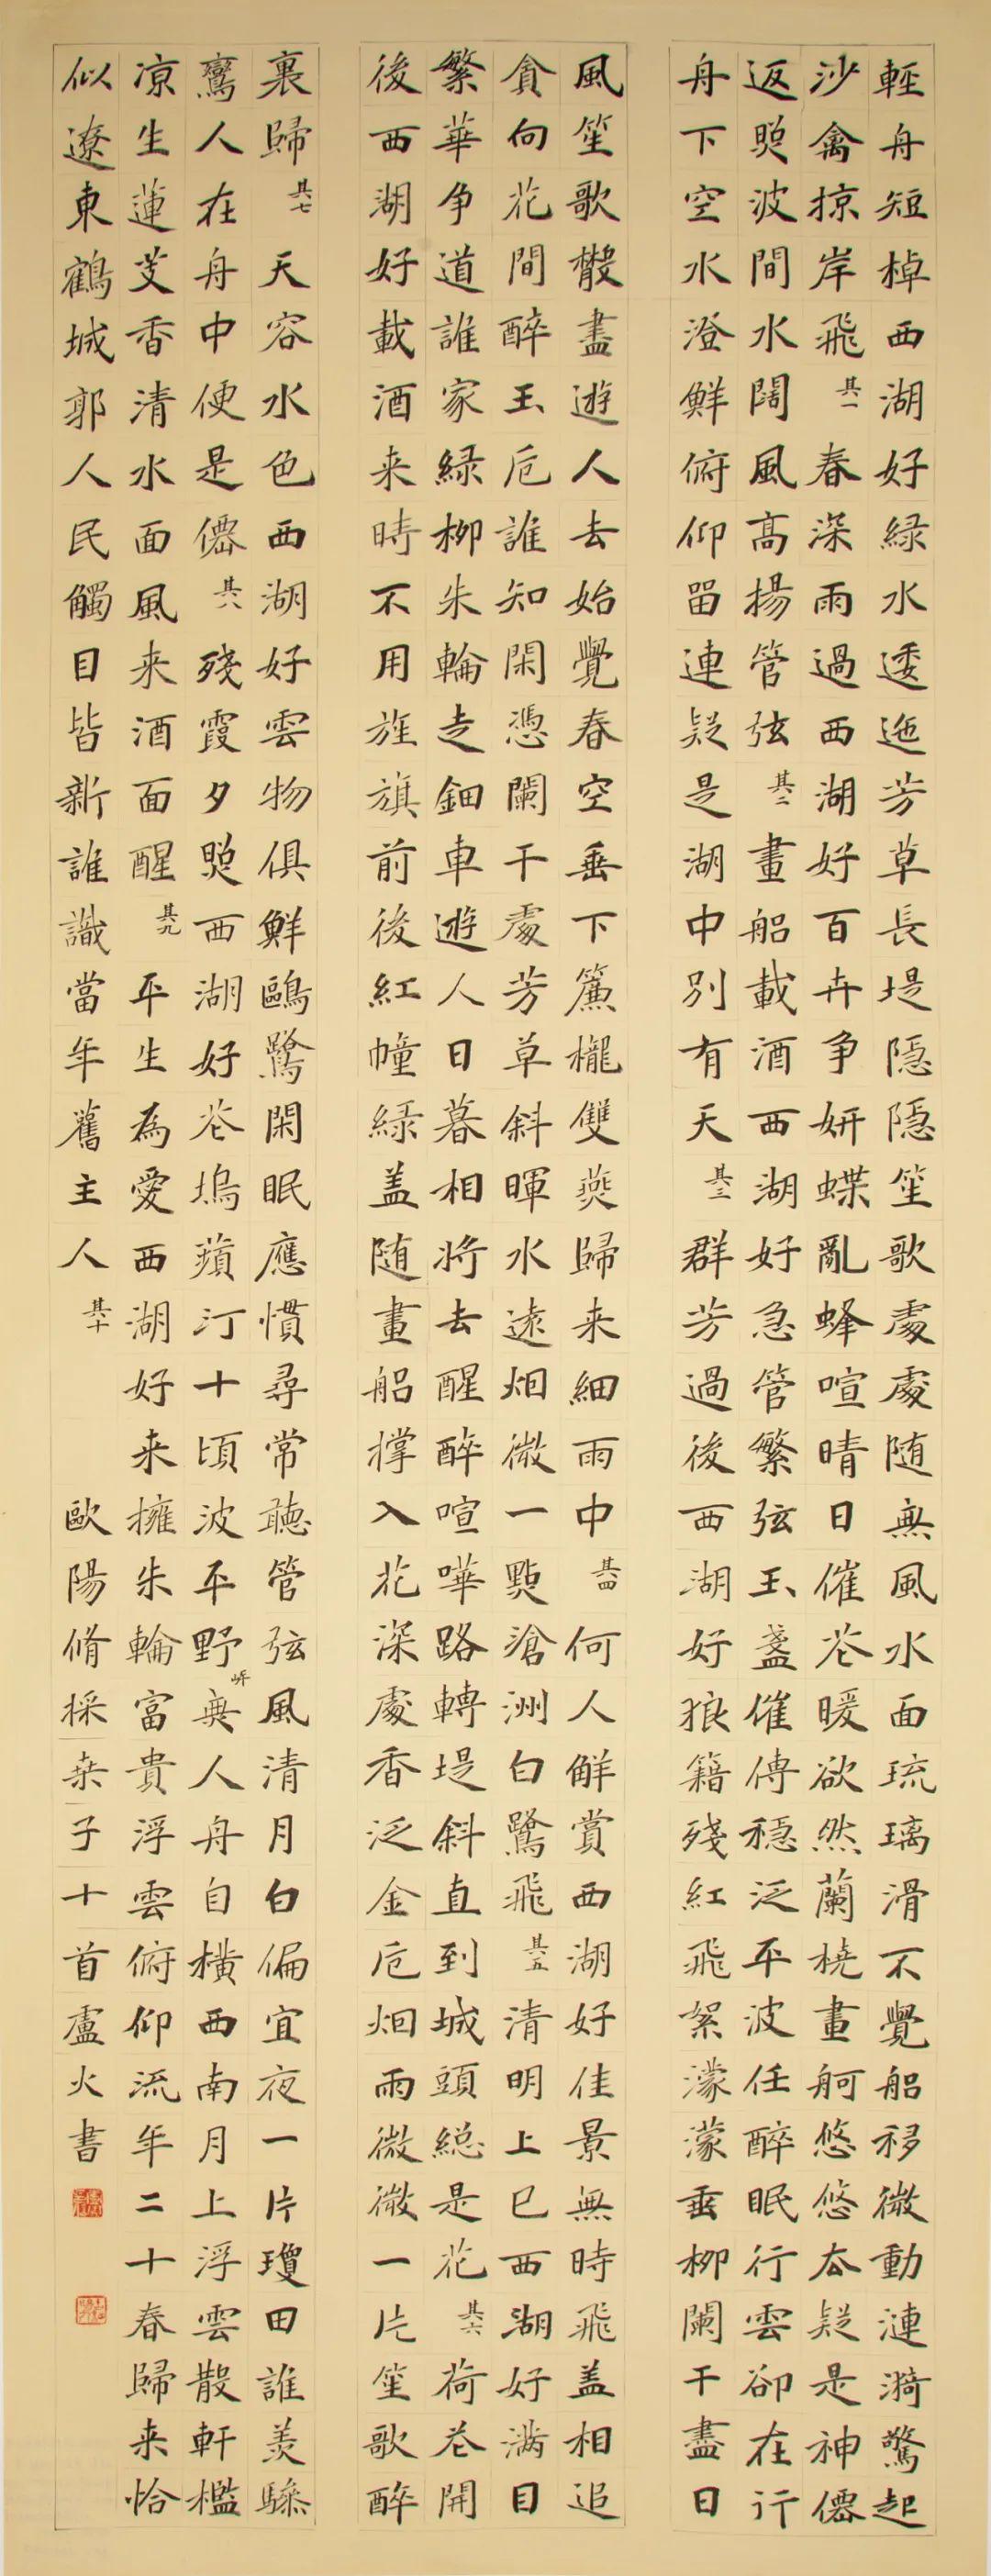 輕舟短棹西湖好綠水逶迤芳草長堤隱隱笙歌處處随無風水面琉璃滑不覺船移微動漣漪驚起
沙禽掠岸飛其一春深雨過西湖好百卉争妍蝶亂蜂喧晴日催花暖欲然蘭橈畫舸悠悠去疑是神僊
返照波間水闊風高揚管弦其二畫船載酒西湖好急管繁弦玉盞催傳穩泛平波任醉眠行雲卻在行
舟下空水澄鮮俯仰留連疑是湖中別有天其三群芳過後西湖好狼籍殘紅飛絮濛濛垂柳闌干盡日
風笙歌散盡遊人去始覺春空垂下簾櫳雙燕歸来細雨中其四何人解賞西湖好佳景無時飛盖相追
貪向花間醉玉卮誰知閑憑闌干處芳草斜暉水遠烟微一點滄洲白鷺飛其五清明上巳西湖好滿目
繁華争道誰家緑柳朱輪走鈿車遊人日暮相將去醒醉喧嘩路轉堤斜直到城頭総是花其六荷花開
後西湖好載酒来時不用旌旗前後紅幢緑盖随畫船撑入花深處香泛金卮烟雨微微一片笙歌醉
裏歸其七天容水色西湖好雲物俱鮮鷗鷺閑眠應慣尋常聽管弦風清月白偏宜夜一片瓊田誰羡驂
鸞人在舟中便是僊其八殘霞夕照西湖好花塢蘋汀十頃波平野岸無人舟自橫西南月上浮雲散軒檻
凉生蓮芰香清水面風来酒面醒其九平生為愛西湖好来擁朱輪富貴浮雲俯仰流年二十春歸来恰
似遼東鶴城郭人民觸目皆新誰識當年舊主人其十歐陽脩採桑子十首盧火書